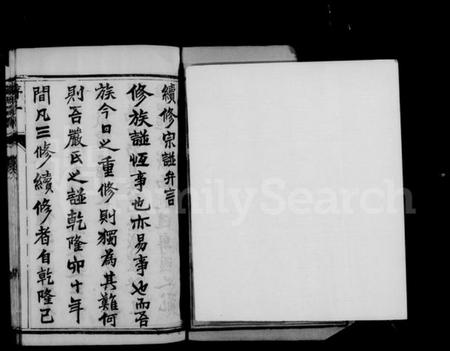 續修宗譜弁言
修族譜恆事也亦易事也而吾
族今日之重修則獨為其難何
則吾嚴氏之譜乾隆卯十年
間凡三修續修者自乾隆己
FamilySearch